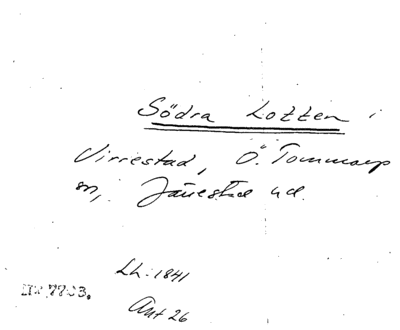 Södra Lotten i
Virrestad, Ö. Tommarp
sn, Järrestad hd.
Lh. 1841
7703.
Ant 26